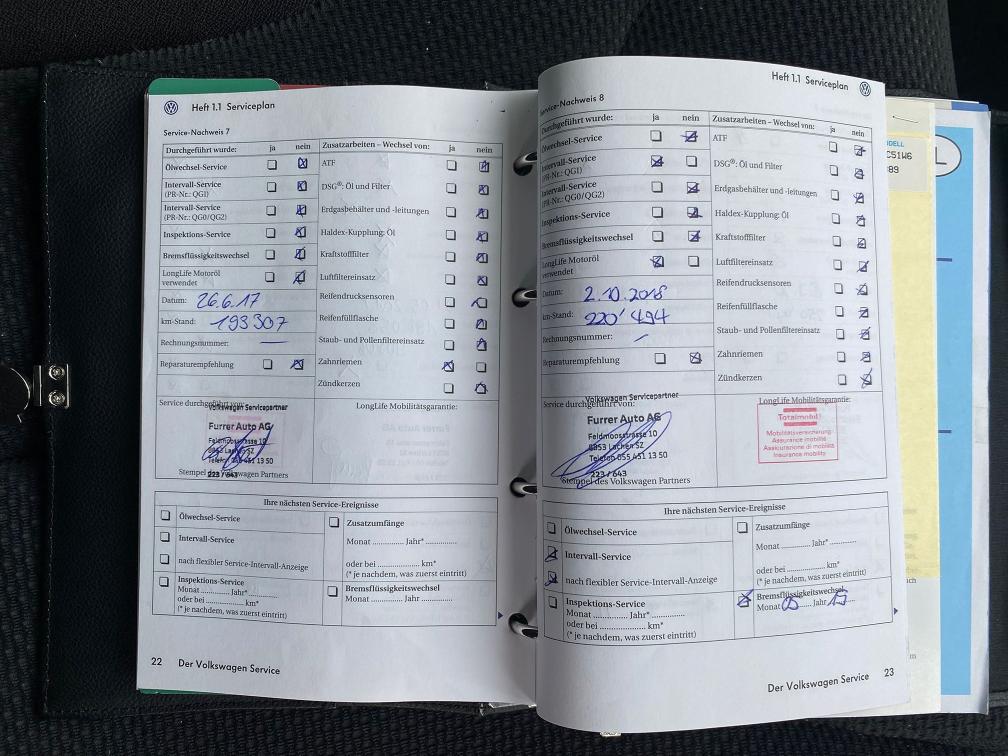 Heft 1.1 Serviceplan
Service-Nachweis 7
Durchgeführt wurde: ja nein
Ölwechsel-Service
Intervall-Service
(PR-Nr.: QG1)
Intervall-Service
(PR-Nr.: QG0/QG2)
Inspektions-Service
Bremsflüssigkeitswechsel
LongLife Motoröl
verwendet
Datum: 26.6.17
km-Stand: 193307
Rechnungsnummer: —
Reparaturempfehlung
Zusatzarbeiten – Wechsel von: ja nein
ATF
DSG®: Öl und Filter
Erdgasbehälter und -leitungen
Haldex-Kupplung: Öl
Kraftstofffilter
Luftfiltereinsatz
Reifendrucksensoren
Reifenfüllflasche
Staub- und Pollenfiltereinsatz
Zahnriemen
Zündkerzen
Service durchgeführt von:
Volkswagen Servicepartner
Furrer Auto AG
Feldmoosstrasse 10
8853 Lachen SZ
Telefon 055 451 13 50
223 / 643
Stempel des Volkswagen Partners
LongLife Mobilitätsgarantie:
Ihre nächsten Service-Ereignisse
Ölwechsel-Service
Intervall-Service
nach flexibler Service-Intervall-Anzeige
Inspektions-Service
Monat ............ Jahr* ............
oder bei ............ km*
(* je nachdem, was zuerst eintritt)
Zusatzumfänge
Monat ............ Jahr* ............
oder bei ............ km*
(* je nachdem, was zuerst eintritt)
Bremsflüssigkeitswechsel
Monat ............ Jahr ............
22 Der Volkswagen Service
Heft 1.1 Serviceplan
Service-Nachweis 8
Durchgeführt wurde: ja nein
Ölwechsel-Service
Intervall-Service
(PR-Nr.: QG1)
Intervall-Service
(PR-Nr.: QG0/QG2)
Inspektions-Service
Bremsflüssigkeitswechsel
LongLife Motoröl
verwendet
Datum: 2.10.2018
km-Stand: 220'494
Rechnungsnummer:
Reparaturempfehlung
Zusatzarbeiten – Wechsel von: ja nein
ATF
DSG®: Öl und Filter
Erdgasbehälter und -leitungen
Haldex-Kupplung: Öl
Kraftstofffilter
Luftfiltereinsatz
Reifendrucksensoren
Reifenfüllflasche
Staub- und Pollenfiltereinsatz
Zahnriemen
Zündkerzen
Service durchgeführt von:
Volkswagen Servicepartner
Furrer Auto AG
Feldmoosstrasse 10
8853 Lachen SZ
Telefon 055 451 13 50
223 / 643
Stempel des Volkswagen Partners
LongLife Mobilitätsgarantie:
Totalmobil!
Mobilitätsversicherung
Assurance mobilité
Assicurazione di mobilità
Insurance mobility
Ihre nächsten Service-Ereignisse
Ölwechsel-Service
Intervall-Service
nach flexibler Service-Intervall-Anzeige
Inspektions-Service
Monat ............ Jahr* ............
oder bei ............ km*
(* je nachdem, was zuerst eintritt)
Zusatzumfänge
Monat ............ Jahr* ............
oder bei ............ km*
(* je nachdem, was zuerst eintritt)
Bremsflüssigkeitswechsel
Monat Jahr
Der Volkswagen Service 23
C51W6
L